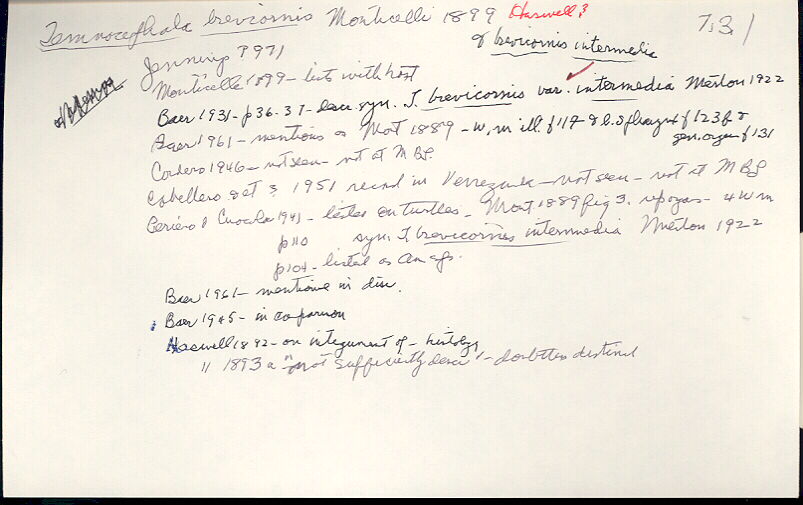 Temnocephala brevicornis Monticelli 1899 Haswell?
7,3,1
& brevicornis intermedia
Jennings 1971
Monticelli 1899 - lists with host
Baer 1931 - p 36-37 - desc syn. T. brevicornis var. intermedia Merton 1922
Baer 1961 - mentions as Mont 1889 - w, m ill. f 119 & l.s. pharynx f 123 f &
gen. organ f 131
Cordero 1946 - not seen - not at MBL
Caballero et 1951 record in Venezuela - not seen - not at MBL
1941 - listed on turtles - Mont 1889 fig 3. - 4 w m
p 110 syn. T. brevicornis intermedia Merton 1922
p 101 - listed as
Baer 1961 - mentions in disc.
Baer 1945 - in comparison
Haswell 1892 - on integument of - histology
" 1893 a "not sufficiently desc" - doubtless distinct